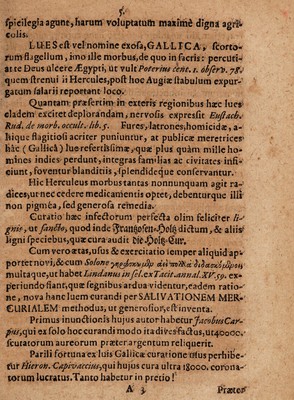 5.
spicilegia agunt, harum voluptatum maximè digna agri-
colis.
LUES est vel nomine exosa, GALLICA, scorto-
rum flagellum, ino ille morbus, de quo in sacris: percuti-
at te Deus ulcere Ægypti, ut vult Poterius cent. 1. observ. 78.
quem strenui ii Hercules, post hoc Augiæ stabulum expur-
gatum salarii repoetant loco.
Quantam præsertim in exteris regionibus hæc lues
cladem excitet deplorandam, nervosis expressit Eustach.
Rud. de morb. occult. lib. 5. Fures, latrones, homicidæ, a-
liique flagitiosi acriter puniuntur, at publicæ meretrices
hâc (Gallicâ) lue refertissimæ, quæ plus quàm mille ho-
mines indies perdunt, integras familias ac civitates infi-
ciunt, foventur blanditiis, splendideque conservantur.
Hic Herculeus morbus tantas nonnunquam agit ra-
dices, ut nec cedere medicamentis optet, debenturque illi
non pigméa, sed generosa remedia.
Curatio hæc infectorum perfecta olim feliciter li-
gnis, ut sancto, quod inde Frantzosen-Holtz dictum, & aliis
ligni speciebus, quæ cura audit die Holtz-Cur.
Cum verò ætas, usus & exercitatio semper aliquid ap-
porter novi, & cum Solone
multaque, ut habet Landanus in sel. ex Tacit. annal. XV. 59. ex-
periundo fiant, quæ segnibus ardua videntur, eadem ratio-
ne, nova hanc luem curandi per SALIVATIONEM MER-
CURIALEM methodus, ut generosior, est inventa.
Primus inunctionis hujus autor habetur Jacobus Car-
pus, qui ex solo hoc curandi modo ita dives factus, ut 40000.
scutatorum aureorum præter argentum reliquerit.
Parili fortuna ex luis Gallicæ curatione usus perhibe-
tur Hieron. Capivaccius, qui hujus cura ultra 18000. corona-
torum lucratus. Tanto habetur in pretio!
A 3 Præter